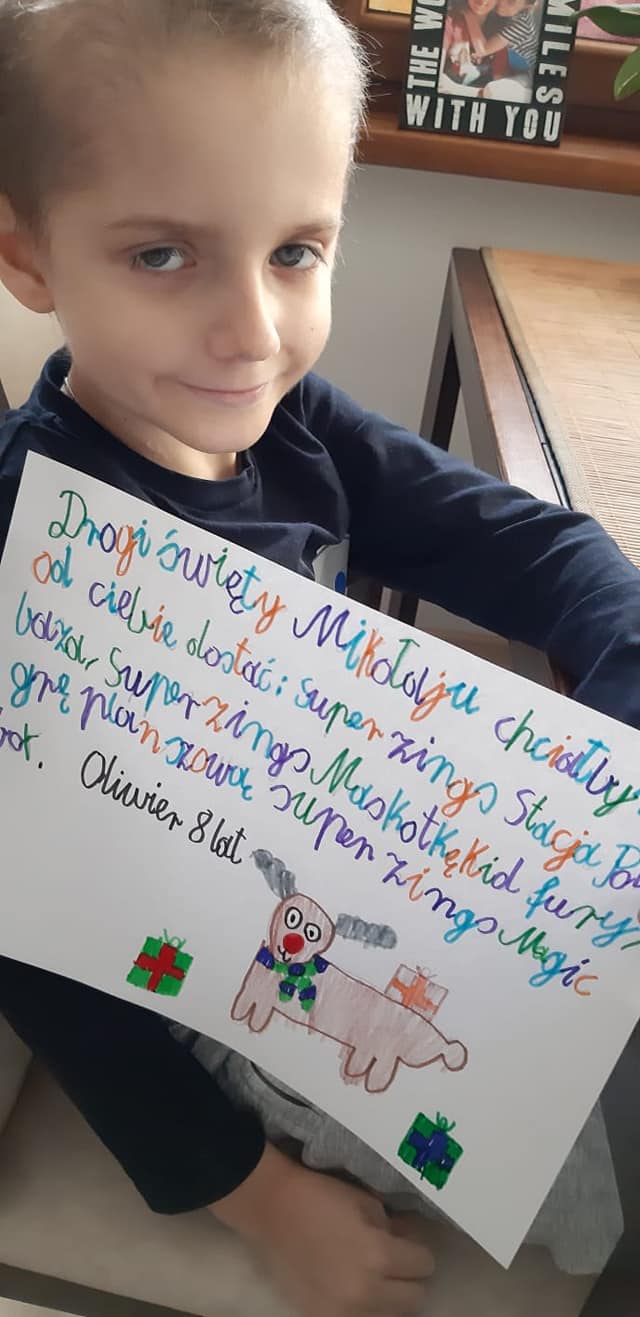 THE WO
MILES
WITH YOU
Drogi święty Mikołaju chciałby
od ciebie dostać: super zings Stacja Po
baza, Super zings Maskotkę Kid fury,
grę planszową super zings Magic
rok.
Oliwier 8 lat